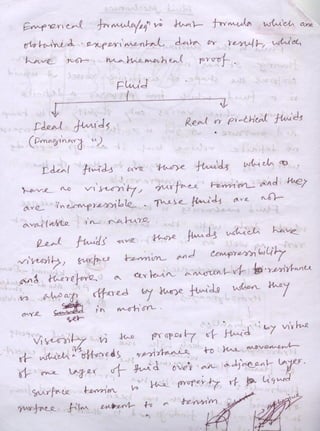 Emperical formula/eqⁿ is that formula which are
obtained experimental data or result, which
have non-mathematical proof.
Fluid
Ideal fluids Real or practical fluids
(Imaginary ")
Ideal fluids are those fluids which
have no viscosity, surface tension and they
are incompressible. These fluids are not
available in nature.
Real fluids are those fluids which have
viscosity, surface tension and compressibility
and therefore a certain amount of resistance
is always offered by those fluids when they
are set in motion.
Viscosity is the property of fluid by virtue
of which it offords resistance to the movement
of one layer of fluid over an adjacent layer.
Surface tension is the property of liquid
surface film to a tension